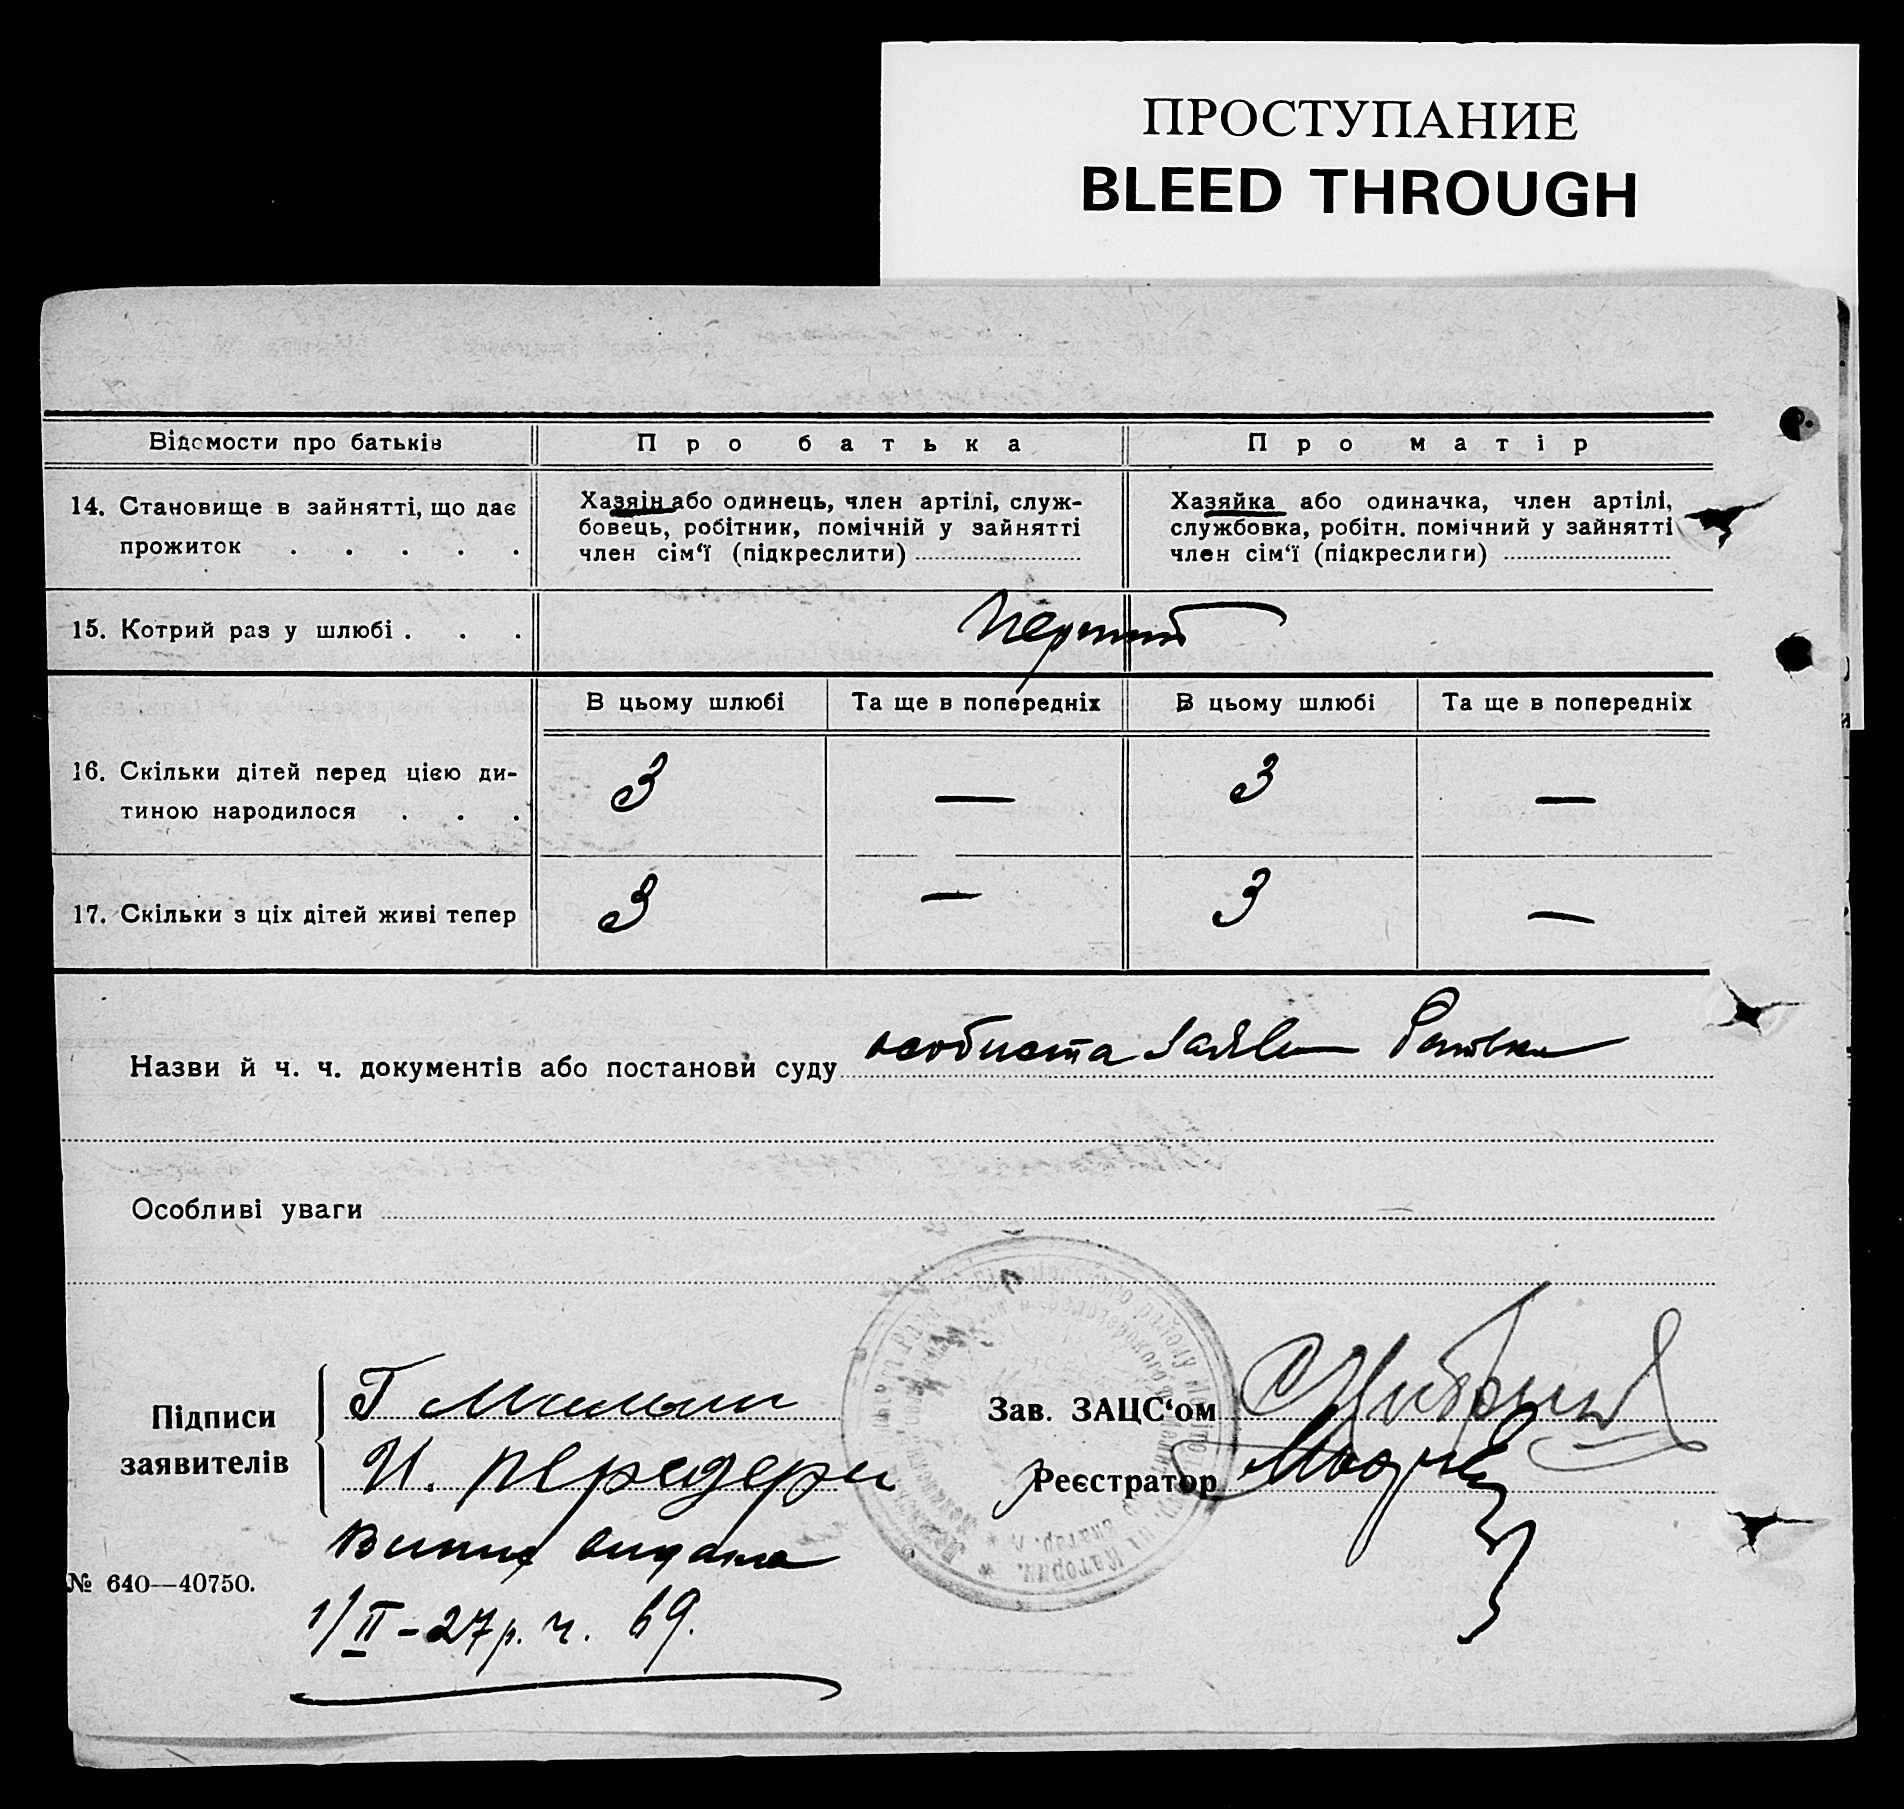 ПРОСТУПАНИЕ
BLEED THROUGH
Відомости про батьків
Про батька
Про матір
14. Становище в зайнятті, що дає
прожиток . . . . .
Хазяїн або одинець, член артілі, служ-
бовець, робітник, помічній у зайнятті
член сім‘ї (підкреслити)
Хазяйка або одиначка, член артілі,
службовка, робітн. помічний у зайнятті
член сім‘ї (підкреслиги)
15. Котрий раз у шлюбі . . .
В цьому шлюбі
Та ще в попередніх
В цьому шлюбі
Та ще в попередніх
16. Скільки дітей перед цією ди-
тиною народилося . . .
3 — 3 —
17. Скільки з ціх дітей живі тепер
3 — 3 —
Назви й ч. ч. документів або постанови суду особиста заява
Особливі уваги
Підписи
заявителів
Г
И. Передери
Зав. ЗАЦС‘ом
Реєстратор
видана
№ 640—40750.
1/II - 27 р. ч. 69.